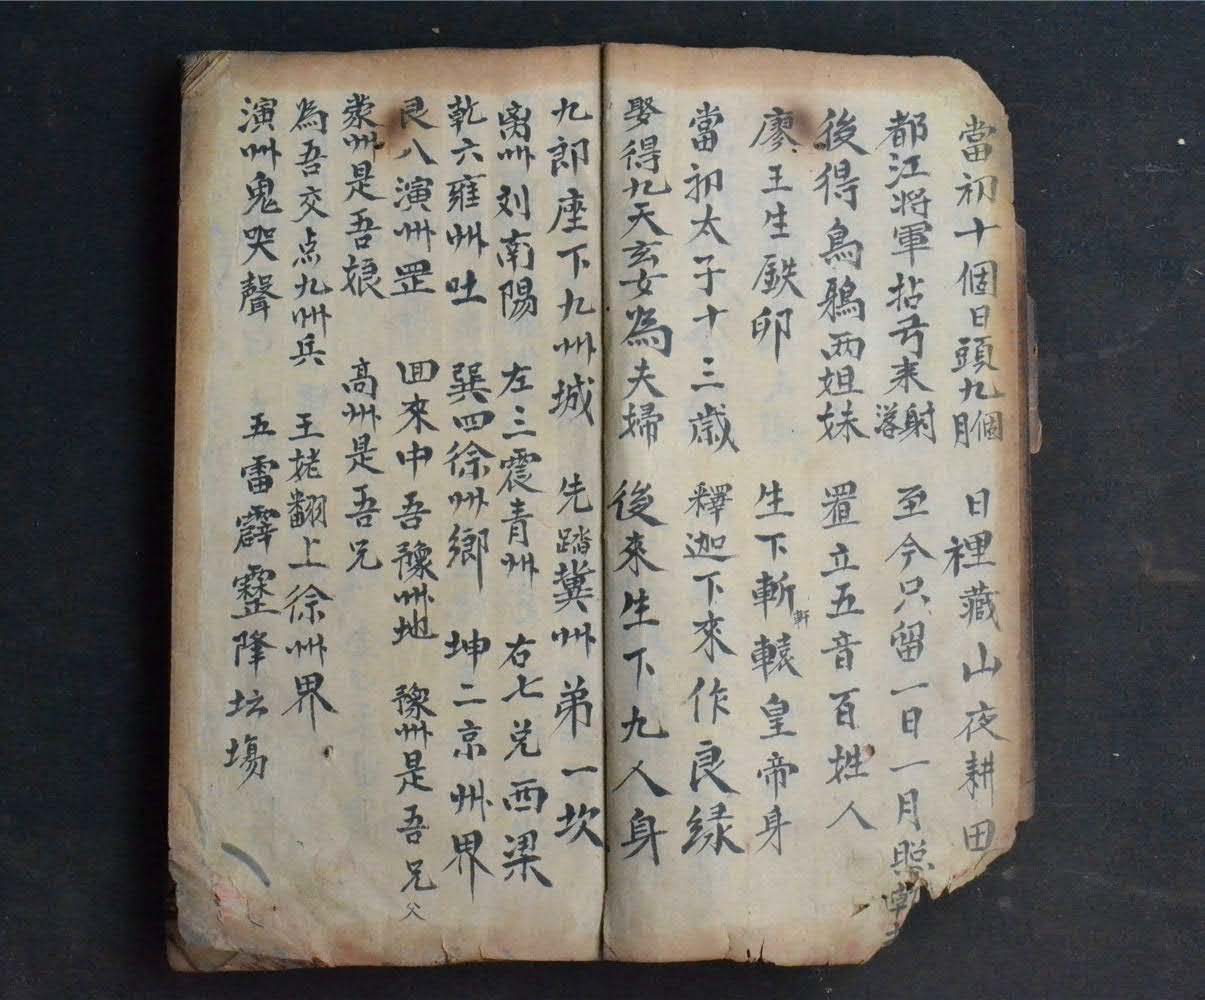 當初十個日頭九個月 日裡藏山夜耕田
都江將軍拈弓来射落 至今只留一日一月照乾
後得鳥鴉两姐妹 置立五音百姓人
廖王生鉄卵 生下斬轅皇帝身
軒
當初太子十三歳 釋迦下來作良緑
娶得九天玄女為夫婦 後來生下九人身
九郎座下九州城 先踏冀州弟一坎
离州刘南陽 左三震青州 右七兑西梁
乾六雍州吐 巽四徐州鄉 坤二京州界
艮八演州罡 囬來中吾豫州地 豫州是吾兄
父
蒙州是吾娘 高州是吾兄
為吾交点九州兵 王姥翻上徐州界
演州鬼哭聲 五雷霹靂降坛塲